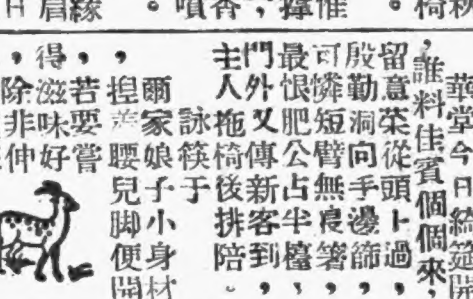 椅
。
惟
撐
，
香
噴
。
緣
眉
華堂今日綺筵開
，誰料佳賓個個來，
留意菜從頭上過，
殷勤酒向手邊篩，
可憐短臂無長箸，
最恨肥公占半檯，
門外又傳新客到，
主人拖椅後排陪。
詠筷子
爾家娘子小身材
，捏着腰兒脚便開
若要嘗
，得滋味好
，除非伸